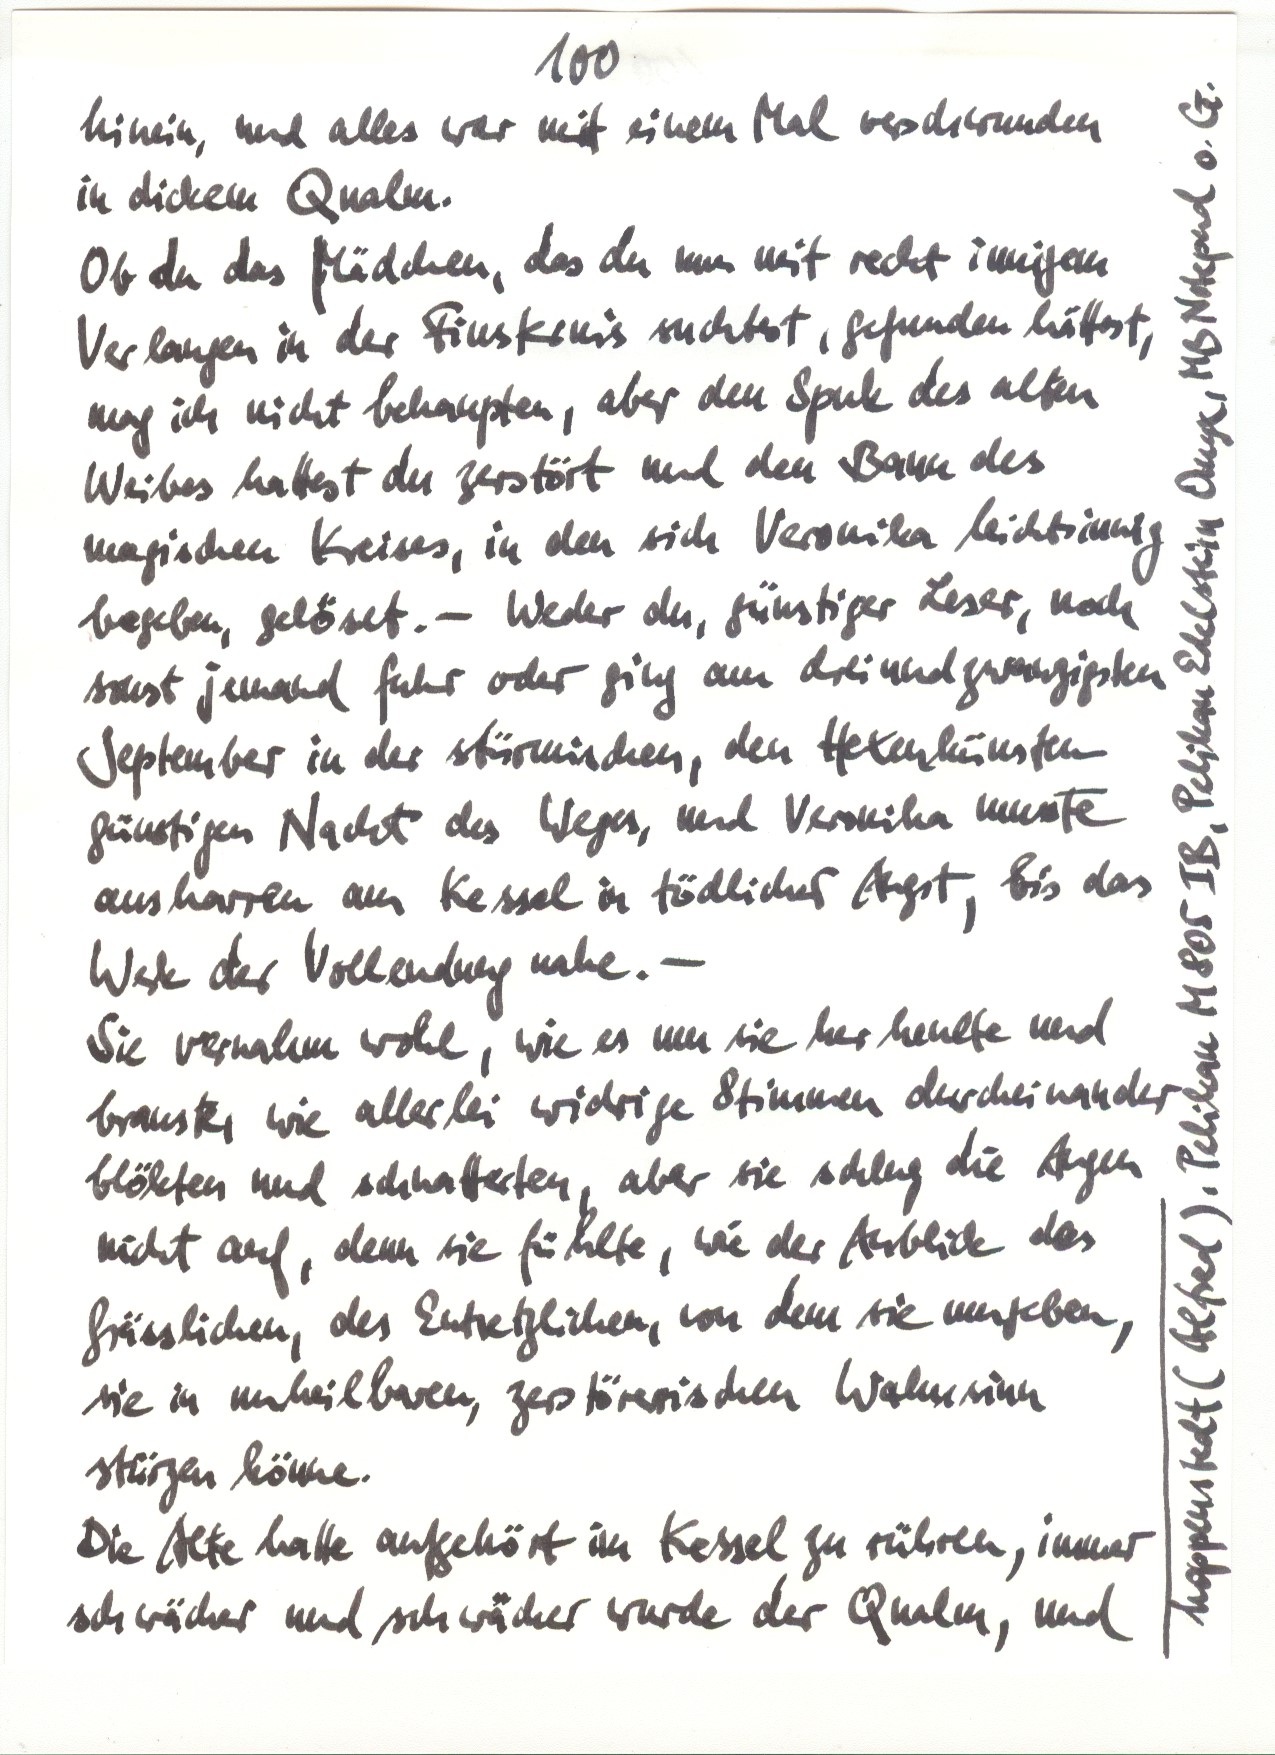 100
hinein, und alles war mit einem Mal verschwunden
in dickem Qualm.
Ob du das Mädchen, das du nun mit recht innigem
Verlangen in der Finsternis suchtest, gefunden hättest,
mag ich nicht behaupten, aber den Spuk des alten
Weibes hattest du zerstört und den Bann des
magischen Kreises, in den sich Veronika leichtsinnig
begeben, gelöset. – Weder du, günstiger Leser, noch
sonst jemand fuhr oder ging am dreiundzwanzigsten
September in der stürmischen, den Hexenkünsten
günstigen Nacht des Weges, und Veronika musste
ausharren am Kessel in tödlicher Angst, bis das
Werk der Vollendung nahe. –
Sie vernahm wohl, wie es um sie her heulte und
brauste, wie allerlei widrige Stimmen durcheinander
blökten und schnatterten, aber sie schlug die Augen
nicht auf, denn sie fühlte, wie der Anblick des
Grässlichen, des Entsetzlichen, von dem sie umgeben,
sie in unheilbaren, zerstörerischen Wahnsinn
stürzen könne.
Die Alte hatte aufgehört im Kessel zu rühren, immer
schwächer und schwächer wurde der Qualm, und
hoppenstedt (Alfred). Pelikan M805 IB, Pelikan Edelstein Onyx, MB Notepad o. G.